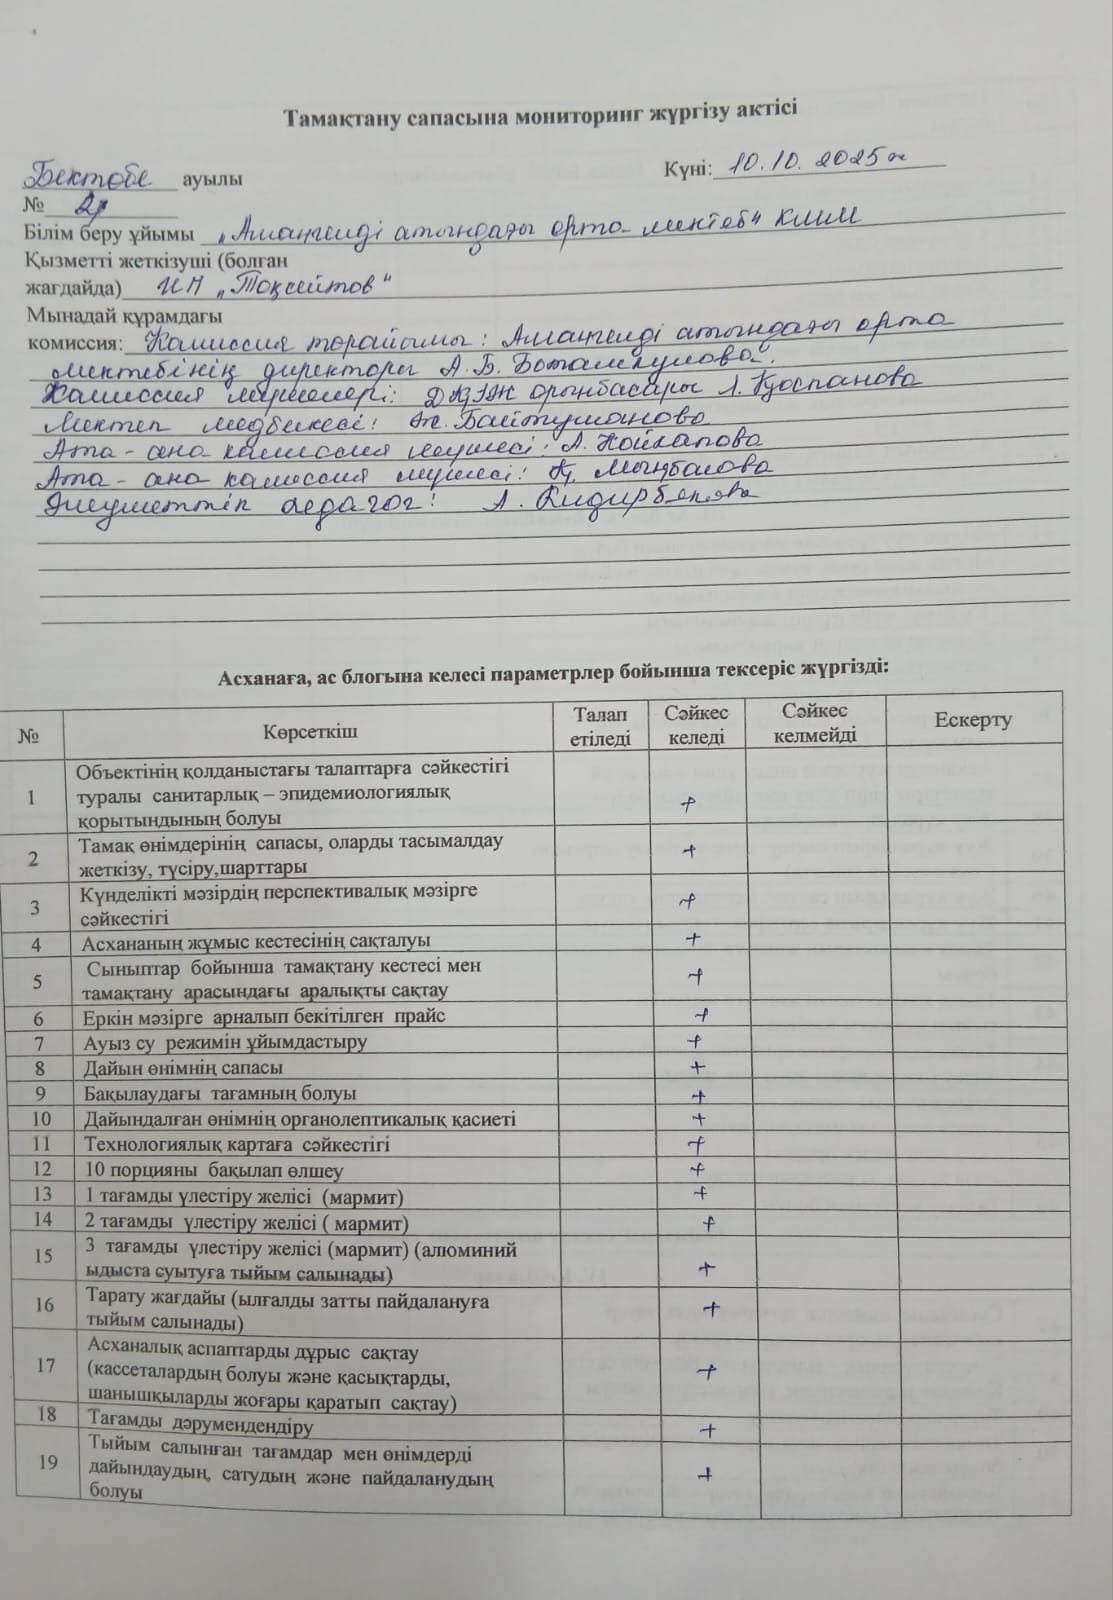 Тамақтану сапасына мониторинг жүргізу актісі
Бектобе ауылы
Күні: 10.10. 2025ж
№ 2
Білім беру ұйымы „Амангелді атындағы орта мектеб" КММ
Қызметті жеткізуші (болған
жағдайда) ИП „Тоқсейтов"
Мынадай құрамдағы
комиссия: Камиссия торайымы: Амангелді атындағы орта
мектебінің директоры А.Б. Боташкулова.
Камиссия мүшелері: ДҚІЖ орынбасары А. Қоспанова
Мектеп медбикесі: Ж. Байтуманова
Ата-ана камиссия мүшесі: А. Койлапова
Ата-ана камиссия мүшесі: Қ. Мыңбаюва
Әлеуметтік педагог: А. Кидирбекова
Асханаға, ас блогына келесі параметрлер бойынша тексеріс жүргізді:
№ Көрсеткіш Талап етіледі Сәйкес келеді Сәйкес келмейді Ескерту
1 Объектінің қолданыстағы талаптарға сәйкестігі
туралы санитарлық – эпидемиологиялық
қорытындының болуы +
2 Тамақ өнімдерінің сапасы, оларды тасымалдау
жеткізу, түсіру,шарттары +
3 Күнделікті мәзірдің перспективалық мәзірге
сәйкестігі +
4 Асхананың жұмыс кестесінің сақталуы +
5 Сыныптар бойынша тамақтану кестесі мен
тамақтану арасындағы аралықты сақтау +
6 Еркін мәзірге арналып бекітілген прайс +
7 Ауыз су режимін ұйымдастыру +
8 Дайын өнімнің сапасы +
9 Бақылаудағы тағамның болуы +
10 Дайындалған өнімнің органолептикалық қасиеті +
11 Технологиялық картаға сәйкестігі +
12 10 порцияны бақылап өлшеу +
13 1 тағамды үлестіру желісі (мармит) +
14 2 тағамды үлестіру желісі ( мармит) +
15 3 тағамды үлестіру желісі (мармит) (алюминий
ыдыста суытуға тыйым салынады) +
16 Тарату жағдайы (ылғалды затты пайдалануға
тыйым салынады) +
17 Асханалық аспаптарды дұрыс сақтау
(кассеталардың болуы және қасықтарды,
шанышқыларды жоғары қаратып сақтау) +
18 Тағамды дәрумендендіру +
19 Тыйым салынған тағамдар мен өнімдерді
дайындаудың, сатудың және пайдаланудың
болуы +